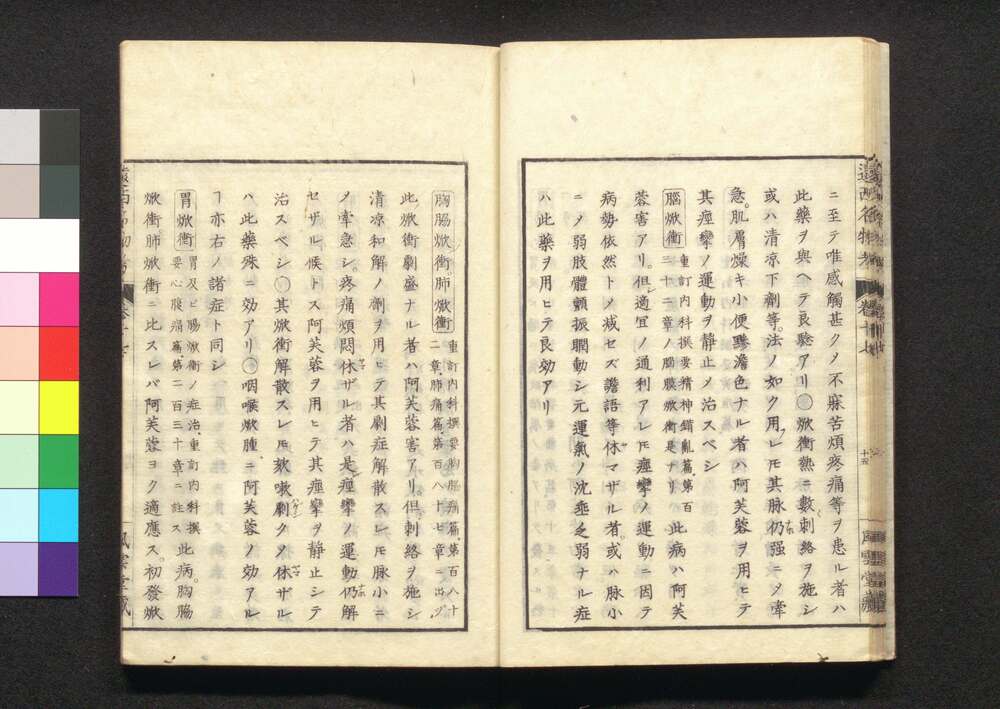 ニ至テ唯感觸甚クノ不寐苦煩疼痛等ヲ患ル者ハ
此藥ヲ與ヘテ良驗アリ○焮衝熱ニ數刺絡ヲ施シ
或ハ清凉下劑等。法ノ如ク用レ𪜈其脉仍强ニメ牽
急。肌膚燥キ小便膠澹色ナル者ハ阿芙蓉ヲ用ヒテ
其痙攣ノ運動ヲ静止メ治スベシ
腦焮衝 重訂内科撰要精神錯亂篇第百三十二章ノ腦膜焮衝是ナリ 此病ハ阿芙
蓉害アリ。但適宜ノ通利アレ𪜈痙攣ノ運動ニ因テ
病勢依然トメ減セズ譫語等休マザル者。或ハ脉小
ニノ弱肢體顫振瞤動シ元運氣ノ沈亟乏弱ナル症
ハ此藥ヲ用ヒテ良効アリ
十五
胸膓焮衝。肺焮衝 重訂内科撰要胸膈痛篇第百八十二章肺痛篇第百八十七章ニ出ヅ
此焮衝劇盛ナル者ハ阿芙蓉害アリ但刺絡ヲ施シ
清凉和解ノ劑ヲ用ヒテ其劇症解散スレ𪜈脉小ニ
ノ牽急シ。疼痛煩悶休ザル者ハ是レ痙攣ノ運動仍解
セザル候トス阿芙蓉ヲ用ヒテ其痙攣ヲ静止シテ
治スベシ○其焮衝解散スレ𪜈欬嗽劇クメ休ザル
ハ此藥殊ニ効アリ○咽喉焮腫ニ阿芙蓉ノ効アル
ヿ亦右ノ諸症ト同シ
胃焮衝 胃及ビ膓焮衝ノ症治重訂内科撰要心腹痛篇第二百三十章ニ註ス 此病。胸膓
焮衝肺焮衝ニ比スレバ阿芙蓉ヨク適應ス。初發焮